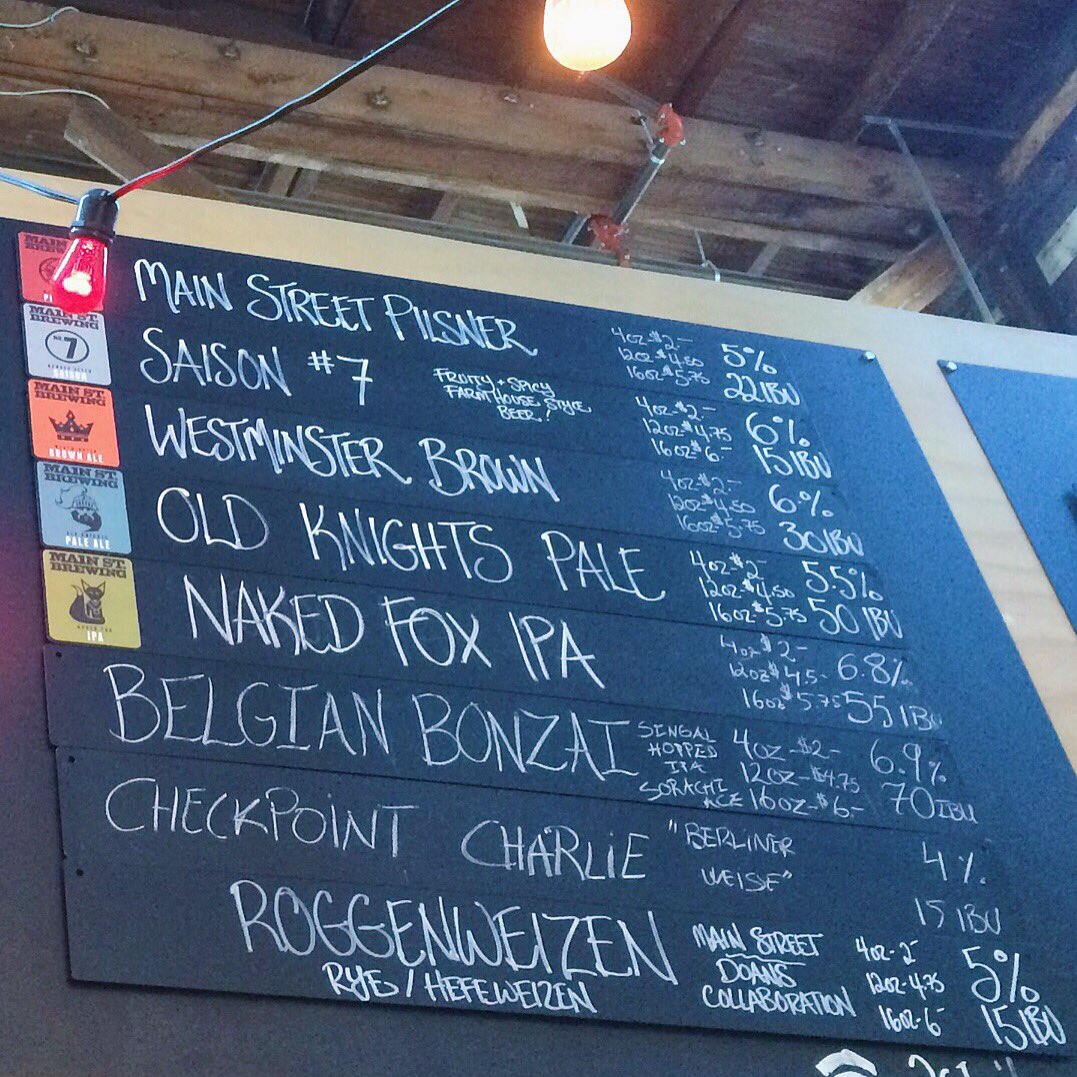 MAIN ST
BREWING
MAIN STREET PILSNER
4OZ $2-
12OZ $4.50
16OZ $5.75
5%
22 IBU
MAIN ST
BREWING
No.
7
SAISON
SAISON #7
FRUITY + SPICY
FARMHOUSE STYLE
BEER!
4OZ-$2-
12OZ-$4.75
16OZ $6-
6%
15 IBU
MAIN ST
BREWING
BROWN ALE
WESTMINSTER BROWN
4OZ-$2-
12OZ-$4.50
16OZ-$5.75
6%
30 IBU
MAIN ST
BREWING
PALE ALE
OLD KNIGHTS PALE
4OZ-$2-
12OZ-$4.50
16OZ-$5.75
5.5%
50 IBU
MAIN ST
BREWING
NAKED FOX
IPA
NAKED FOX IPA
4OZ $2-
12OZ $4.5-
16OZ $5.75
6.8%
55 IBU
BELGIAN BONZAI
SINGAL
HOPPED
IPA
SORACHI
ACE
4OZ-$2-
12OZ-$4.75
16OZ-$6-
6.9%
70 IBU
CHECKPOINT CHARLIE
"BERLINER
WEISE"
4%
15 IBU
ROGGENWEIZEN
RYE / HEFEWEIZEN
MAIN STREET
DOANS
COLLABORATION
4OZ-2-
12OZ-4.75
16OZ-6-
5%
15 IBU